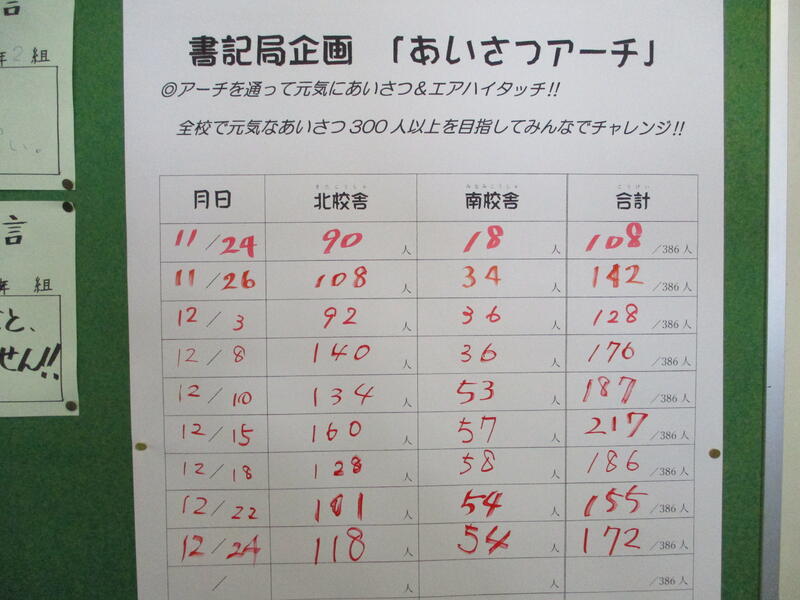 言
年2組
い。
言
年 組
と、
せん!!
書記局企画 「あいさつアーチ」
◎アーチを通って元気にあいさつ&エアハイタッチ!!
全校で元気なあいさつ300人以上を目指してみんなでチャレンジ!!
月日 北校舎 南校舎 合計
11/24 90人 18人 108/386人
11/26 108人 34人 142/386人
12/3 92人 36人 128/386人
12/8 140人 36人 176/386人
12/10 134人 53人 187/386人
12/15 160人 57人 217/386人
12/18 128人 58人 186/386人
12/22 101人 54人 155/386人
12/24 118人 54人 172/386人
/ 人 人 /386人